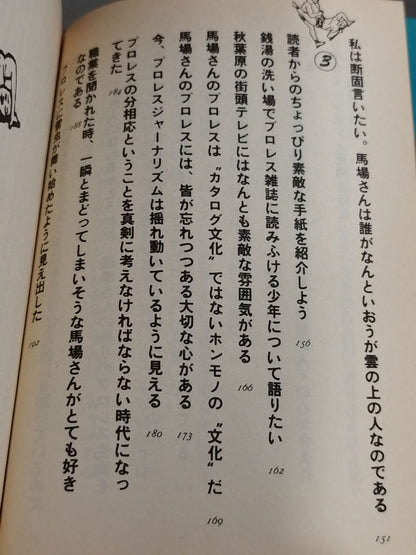 私は断固言いたい。馬場さんは誰がなんといおうが雲の上の人なのである
151
③
読者からのちょっぴり素敵な手紙を紹介しよう
156
銭湯の洗い場でプロレス雑誌に読みふける少年について語りたい
162
秋葉原の街頭テレビにはなんとも素敵な雰囲気がある
166
馬場さんのプロレスは〝カタログ文化〟ではないホンモノの〝文化〟だ
169
馬場さんのプロレスには、皆が忘れつつある大切な心がある
173
今、プロレスジャーナリズムは揺れ動いているように見える
180
プロレスの分相応ということを真剣に考えなければならない時代になっ
てきた
184
職業を聞かれた時、一瞬とまどってしまいそうな馬場さんがとても好き
なのである
188
プロレスに
始めたように見え出した
192